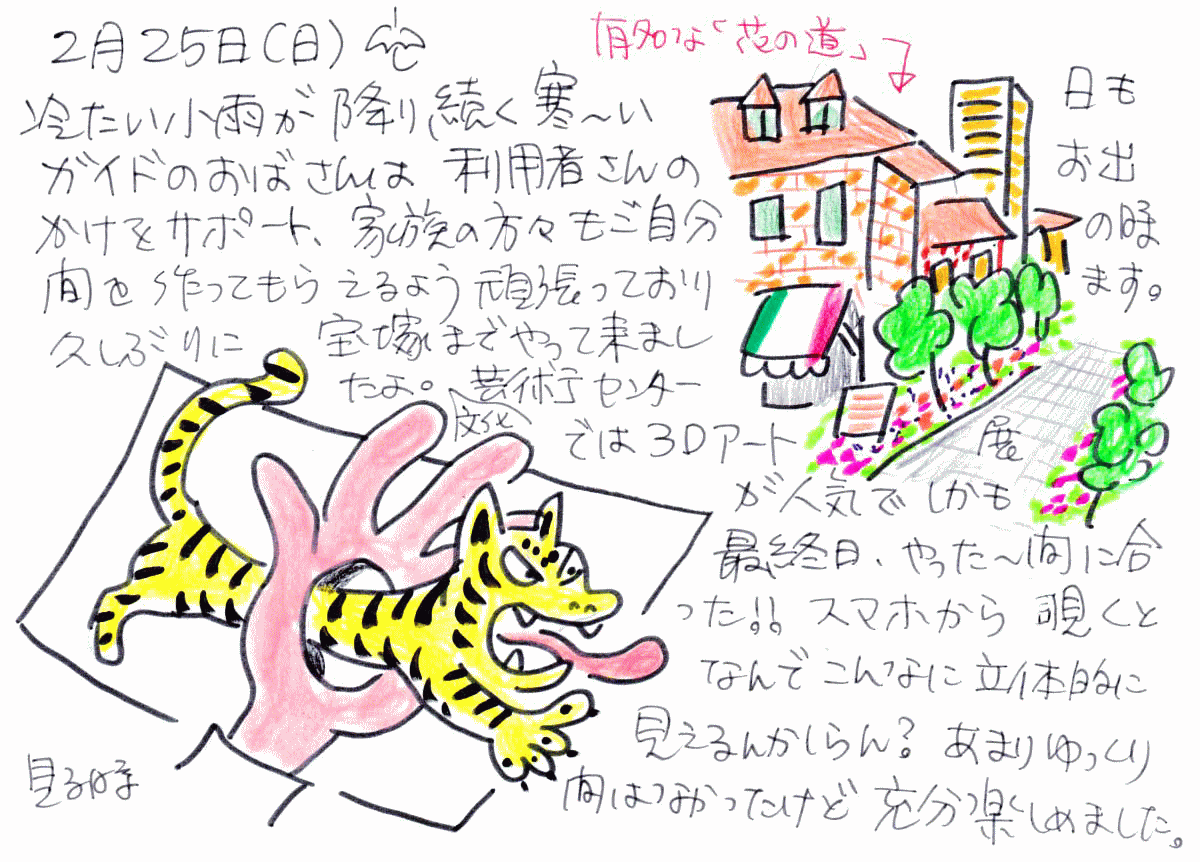 2月25日(日)
有名な「花の道」
冷たい小雨が降り続く寒〜い 日も
ガイドのおばさんは 利用者さんの お出
かけをサポート、家族の方々もご自分 の時
間を作ってもらえるよう頑張っており ます。
久しぶりに 宝塚までやって来まし
たよ。文化芸術センター
では3Dアート 展
が人気で しかも
最終日、やった〜間に合
った!! スマホから 覗くと
なんでこんなに立体的に
見えるんかしらん? あまりゆっくり
見る時 間はなかったけど 充分楽しめました。